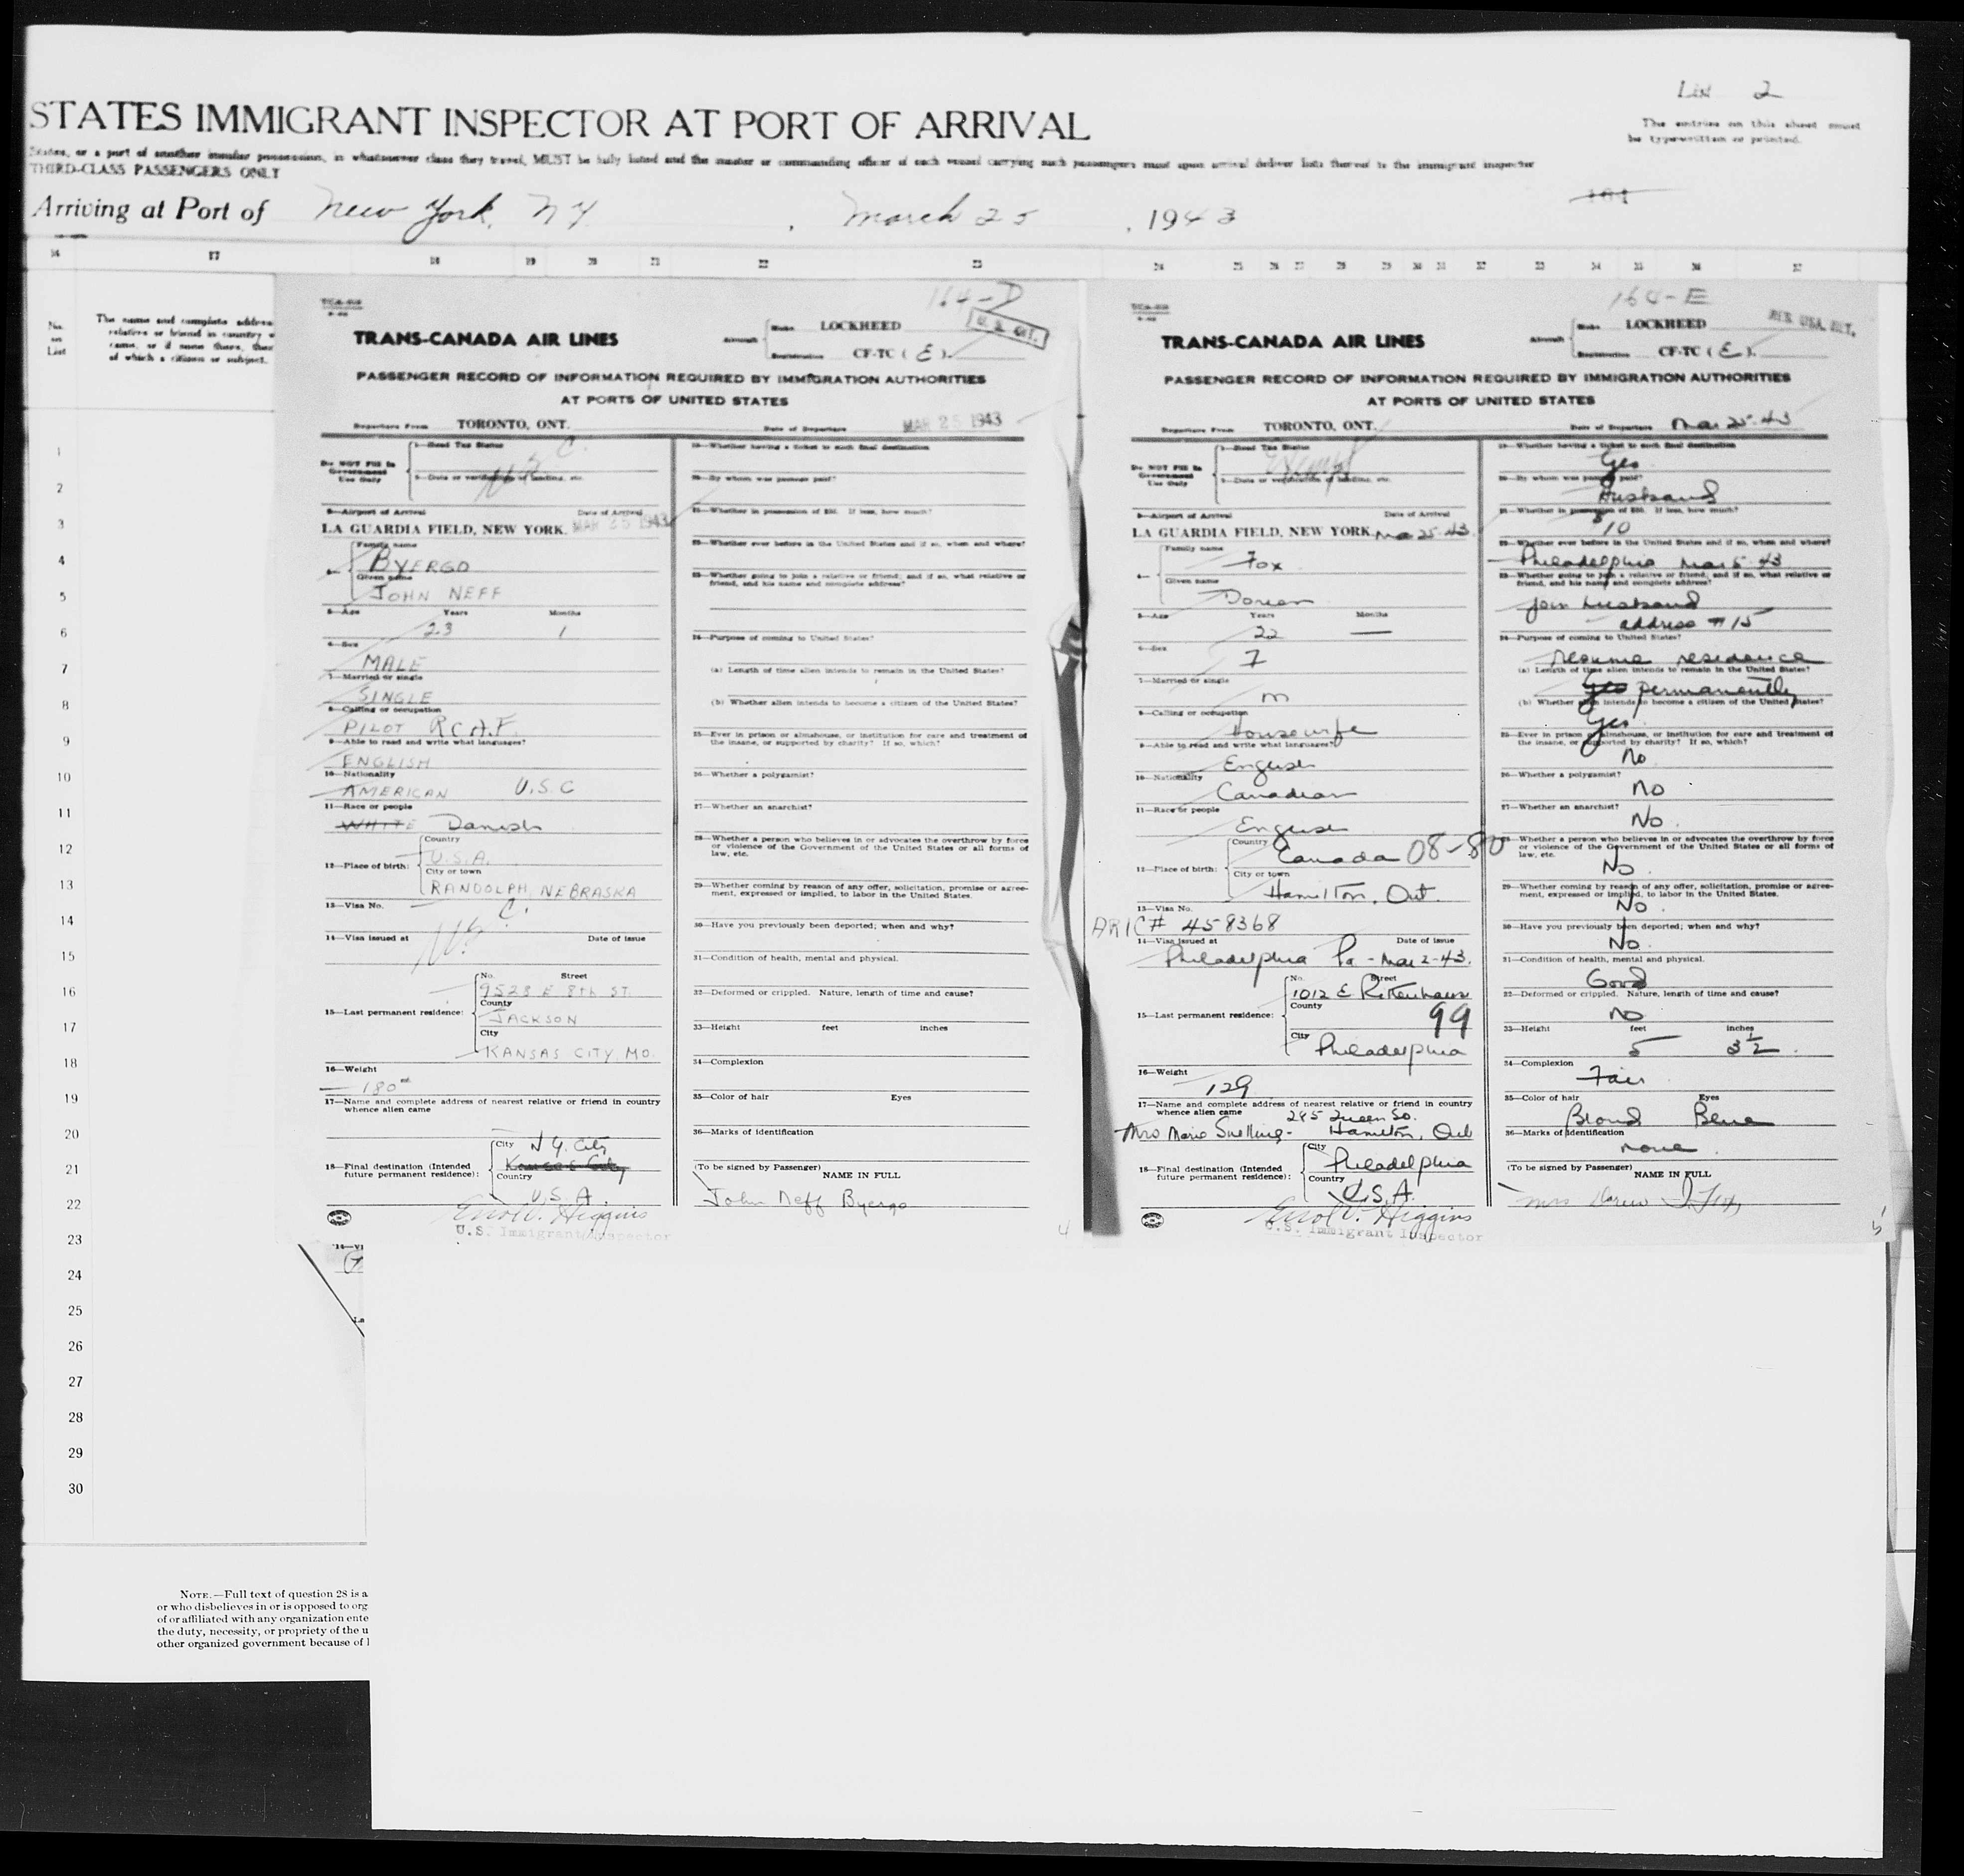 List 2
STATES IMMIGRANT INSPECTOR AT PORT OF ARRIVAL
The entries on this sheet must
be typewritten or printed.
States, or a port of another insular possession, in whatsoever class they travel, MUST be fully listed and the master or commanding officer of each vessel carrying such passengers must upon arrival deliver lists thereof to the immigrant inspector
THIRD-CLASS PASSENGERS ONLY
Arriving at Port of New York, NY, March 25, 1943
16 17 18 19 20 21 22 23 24 25 26 27 28 29 30 31 32 33 34 35 36 37
No. on List
The name and complete address
relatives or friend in country
of which a citizen or subject.
1
2
3
4
5
6
7
8
9
10
11
12
13
14
15
16
17
18
19
20
21
22
23
24
25
26
27
28
29
30
164-D
TRANS-CANADA AIR LINES
Aircraft Make LOCKHEED
Registration CF-TC (E).
PASSENGER RECORD OF INFORMATION REQUIRED BY IMMIGRATION AUTHORITIES
AT PORTS OF UNITED STATES
Departure From TORONTO, ONT. Date of Departure MAR 25 1943
Do NOT Fill In Government Use Only
1—Head Tax Status
2—Date or verification of landing, etc.
3—Airport of Arrival Date of Arrival
LA GUARDIA FIELD, NEW YORK. MAR 25 1943
4— Family name
BYERGO
Given name
JOHN NEFF
5—Age Years Months
23 1
6—Sex
MALE
7—Married or single
SINGLE
8—Calling or occupation
PILOT RCAF
9—Able to read and write what languages?
ENGLISH
10—Nationality
AMERICAN U.S.C
11—Race or people
WHITE Danish
12—Place of birth: Country
U.S.A.
City or town
RANDOLPH, NEBRASKA
13—Visa No.
14—Visa issued at Date of issue
15—Last permanent residence: No. Street
9528 E 8th ST.
County
JACKSON
City
KANSAS CITY, MO.
16—Weight
180
17—Name and complete address of nearest relative or friend in country
whence alien came
18—Final destination (Intended
future permanent residence):
City N.Y. City
Kansas City
Country
U.S.A.
Errol V. Higgins
U.S. Immigrant Inspector
19—Whether having a ticket to such final destination
20—By whom was passage paid?
21—Whether in possession of $50. If less, how much?
22—Whether ever before in the United States and if so, when and where?
23—Whether going to join a relative or friend; and if so, what relative or
friend, and his name and complete address?
24—Purpose of coming to United States?
(a) Length of time alien intends to remain in the United States?
(b) Whether alien intends to become a citizen of the United States?
25—Ever in prison or almshouse, or institution for care and treatment of
the insane, or supported by charity? If so, which?
26—Whether a polygamist?
27—Whether an anarchist?
28—Whether a person who believes in or advocates the overthrow by force
or violence of the Government of the United States or all forms of
law, etc.
29—Whether coming by reason of any offer, solicitation, promise or agree-
ment, expressed or implied, to labor in the United States.
30—Have you previously been deported; when and why?
31—Condition of health, mental and physical.
32—Deformed or crippled. Nature, length of time and cause?
33—Height feet inches
34—Complexion
35—Color of hair Eyes
36—Marks of identification
(To be signed by Passenger)
NAME IN FULL
John Neff Byergo
4
164-E
TRANS-CANADA AIR LINES
Aircraft Make LOCKHEED
Registration CF-TC (E).
PASSENGER RECORD OF INFORMATION REQUIRED BY IMMIGRATION AUTHORITIES
AT PORTS OF UNITED STATES
Departure From TORONTO, ONT. Date of Departure Mar 25-43
Do NOT Fill In Government Use Only
1—Head Tax Status
Exempt
2—Date or verification of landing, etc.
3—Airport of Arrival Date of Arrival
LA GUARDIA FIELD, NEW YORK. Mar 25-43
4— Family name
Fox
Given name
Doreen
5—Age Years Months
22 —
6—Sex
F
7—Married or single
m
8—Calling or occupation
Housewife
9—Able to read and write what languages?
English
10—Nationality
Canadian
11—Race or people
English
12—Place of birth: Country
Canada 08-80
City or town
Hamilton, Ont.
13—Visa No.
ARIC# 458368
14—Visa issued at Date of issue
Philadelphia Pa - Mar 2-43.
15—Last permanent residence: No. Street
1012 E Rittenhouse
County
99
City
Philadelphia
16—Weight
129
17—Name and complete address of nearest relative or friend in country
whence alien came 285 Queen So.
Mrs Marie Snelling - Hamilton, Ont
18—Final destination (Intended
future permanent residence):
City
Philadelphia
Country
U.S.A.
Errol V. Higgins
U.S. Immigrant Inspector
19—Whether having a ticket to such final destination
Yes
20—By whom was passage paid?
Husband
21—Whether in possession of $50. If less, how much?
$10
22—Whether ever before in the United States and if so, when and where?
Philadelphia Mar 5-43
23—Whether going to join a relative or friend; and if so, what relative or
friend, and his name and complete address?
join husband
address #15
24—Purpose of coming to United States?
Resume residence
(a) Length of time alien intends to remain in the United States?
Yes permanently
(b) Whether alien intends to become a citizen of the United States?
Yes
25—Ever in prison or almshouse, or institution for care and treatment of
the insane, or supported by charity? If so, which?
No
26—Whether a polygamist?
No
27—Whether an anarchist?
No.
28—Whether a person who believes in or advocates the overthrow by force
or violence of the Government of the United States or all forms of
law, etc.
No.
29—Whether coming by reason of any offer, solicitation, promise or agree-
ment, expressed or implied, to labor in the United States.
No.
30—Have you previously been deported; when and why?
No.
31—Condition of health, mental and physical.
Good
32—Deformed or crippled. Nature, length of time and cause?
no
33—Height feet inches
5 3½.
34—Complexion
Fair
35—Color of hair Eyes
Blond Blue
36—Marks of identification
none
(To be signed by Passenger)
NAME IN FULL
5
NOTE.—Full text of question 28 is a
or who disbelieves in or is opposed to org
of or affiliated with any organization ente
the duty, necessity, or propriety of the u
other organized government because of